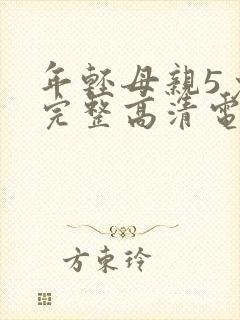 年輕母親5
完整高清電
方東玲